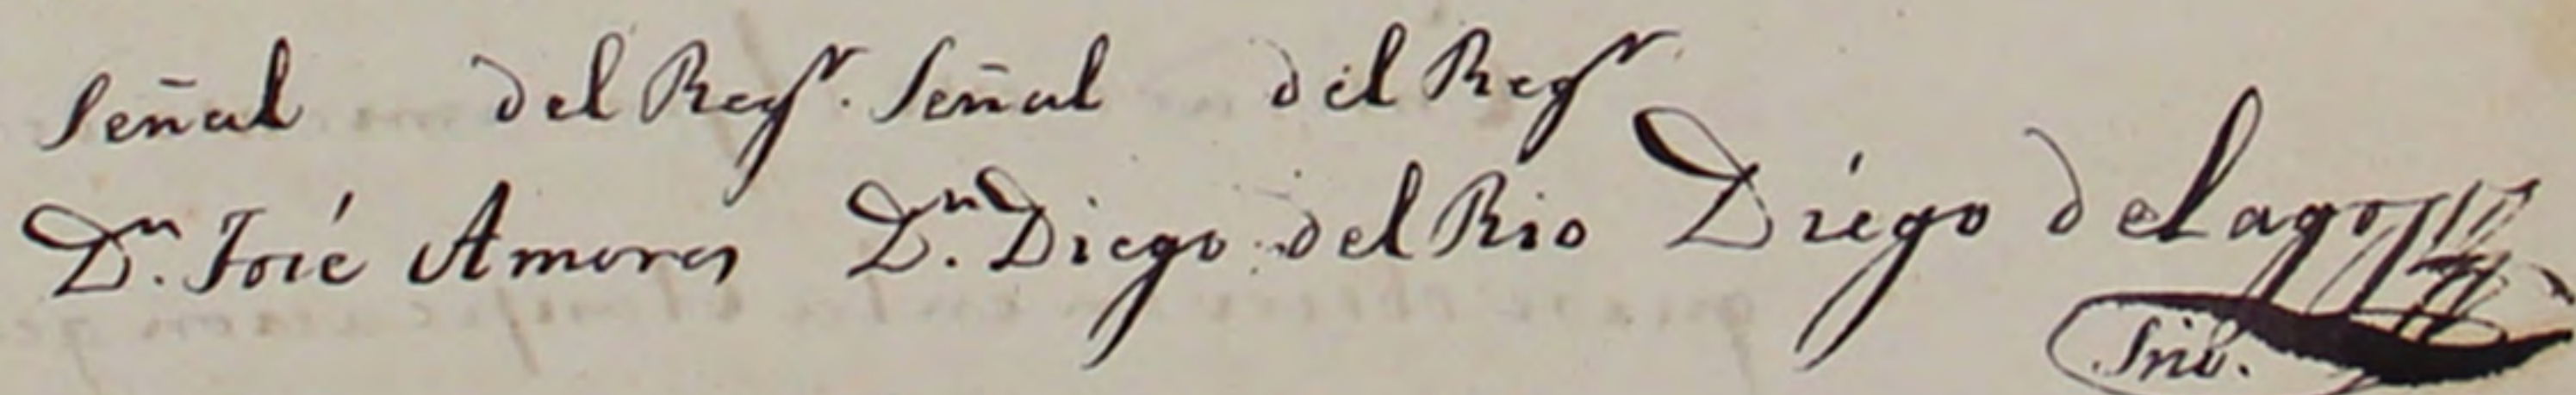 Señal del Regr. Señal del Regr
Dn. José Amores Dn. Diego del Rio Diego de Lago
Srio.